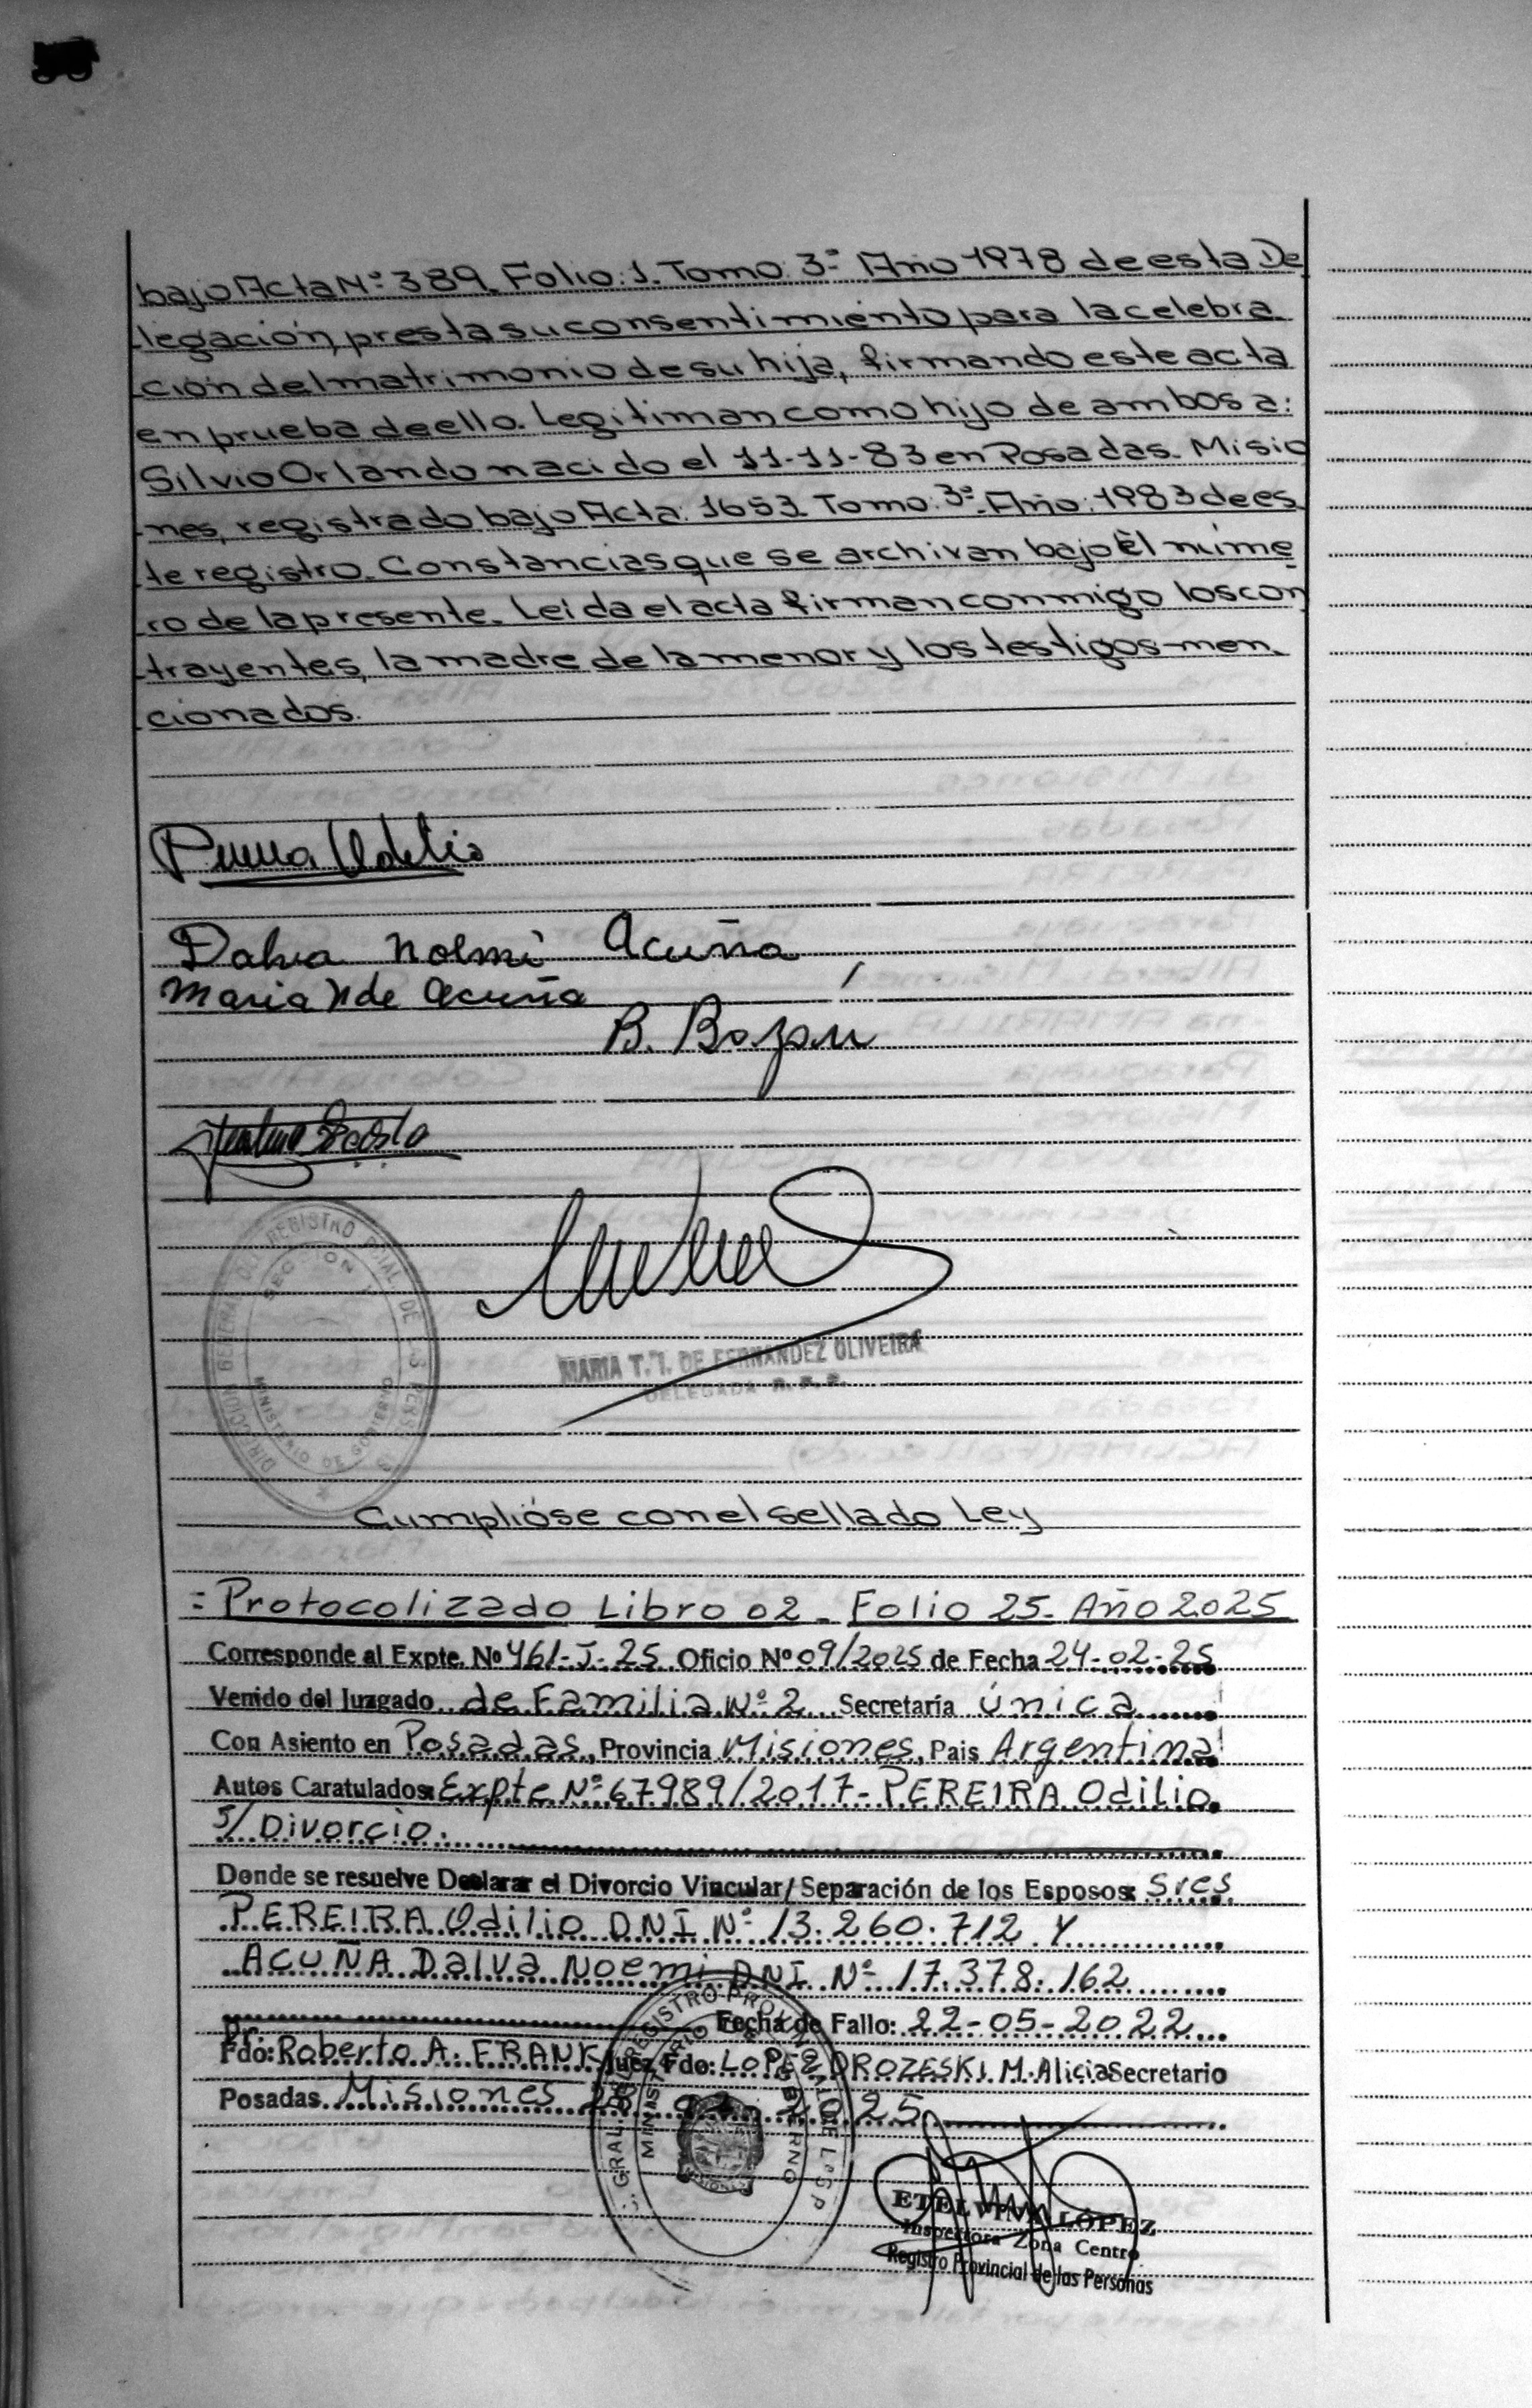 bajo Acta Nº 389. Folio: 1. Tomo: 3º Año 1978 de esta De
legación, presta su consentimiento para la celebra
ción del matrimonio de su hija, firmando este acta
en prueba de ello. Legitiman como hijo de ambos a:
Silvio Orlando nacido el 11-11-83 en Posadas. Misio
nes, registrado bajo Acta: 1653. Tomo: 3º. Año: 1983 de es
te registro. Constancias que se archivan bajo el núme
ro de la presente. Leída el acta firman conmigo los con
trayentes, la madre de la menor y los testigos men
cionados.
Dalva Noemi Acuña
Maria N de Acuña
B.
DIRECCION GENERAL DEL REGISTRO PCIAL DE LAS PERS
SECCION 1
MINISTERIO DE GOBIERNO
MARIA T. I. DE FERNANDEZ OLIVEIRA
DELEGADA R. P. P.
Cumplióse con el sellado Ley
= Protocolizado Libro 02 - Folio 25 - Año 2025
Corresponde al Expte. Nº 461-J-25 Oficio Nº 09/2025 de Fecha 24-02-25
Venido del Juzgado de Familia Nº 2 Secretaría única
Con Asiento en Posadas, Provincia Misiones, Pais Argentina
Autos Caratulados: Expte Nº 67989/2017 - PEREIRA Odilio
s/ Divorcio.
Donde se resuelve Declarar el Divorcio Vincular/Separación de los Esposos: Sres.
PEREIRA Odilio DNI Nº 13.260.712 Y
ACUÑA Dalva Noemi DNI Nº 17.378.162
Fecha de Fallo: 22-05-2022
Dr.
Fdo: Roberto A. FRANK Juez Fdo: LOPEZ DROZESKI. M. Alicia Secretario
Posadas Misiones 2025
GRAL. DEL REGISTRO PROVINCIAL DE L.S P
MINISTERIO DE GOBIERNO
ETELVINA LÓPEZ
Inspectora Zona Centro
Registro Provincial de las Personas